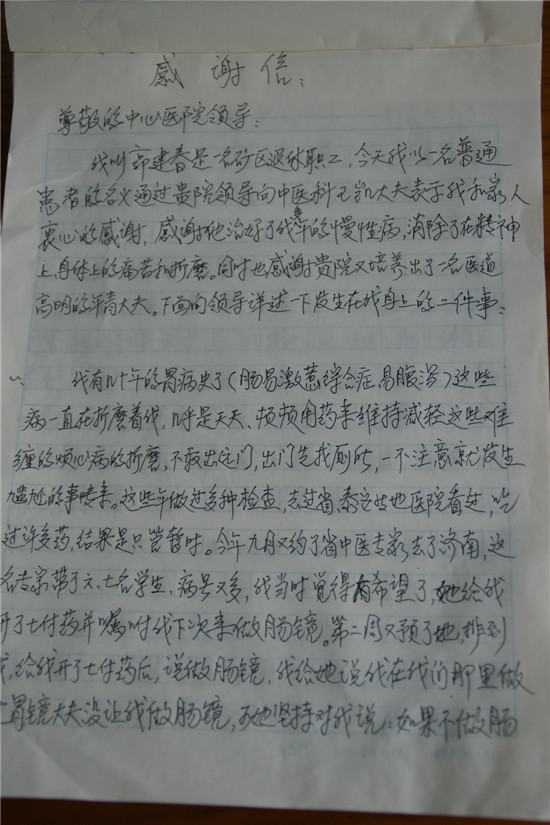 感谢信:
尊敬的中心医院领导:
我叫郭建春是一名矿区退休职工,今天我以一名普通
患者的名义通过贵院领导向中医科王凯大夫表示我和家人
衷心的感谢,感谢他治好了我多年的慢性病,消除了在精神
上、身体上的痛苦和折磨。同时也感谢贵院又培养出了一名医道
高明的年青大夫。下面向领导详述一下发生在我身上的二件事:
我有几十年的胃病史了(肠易激惹综合症,易腹泻)这些
病一直在折磨着我,几乎是天天、顿顿用药来维持减轻这些难
缠的烦心病的折磨,不敢出远门,出门先找厕所,一不注意就发生
尴尬的事情来。这些年做过多种检查,去过省、泰安等地医院看过,吃
过许多药,结果是只管暂时。今年九月又约了省中医专家去了济南,这
名专家带了六、七名学生,病号又多,我当时觉得有希望了,她给我
开了七付药并嘱咐我下次来做肠镜。第二周又预了她,排到
给我开了七付药后,说做肠镜,我给她说我在我们那里做
胃镜大夫没让我做肠镜,可她坚持对我说:如果不做肠